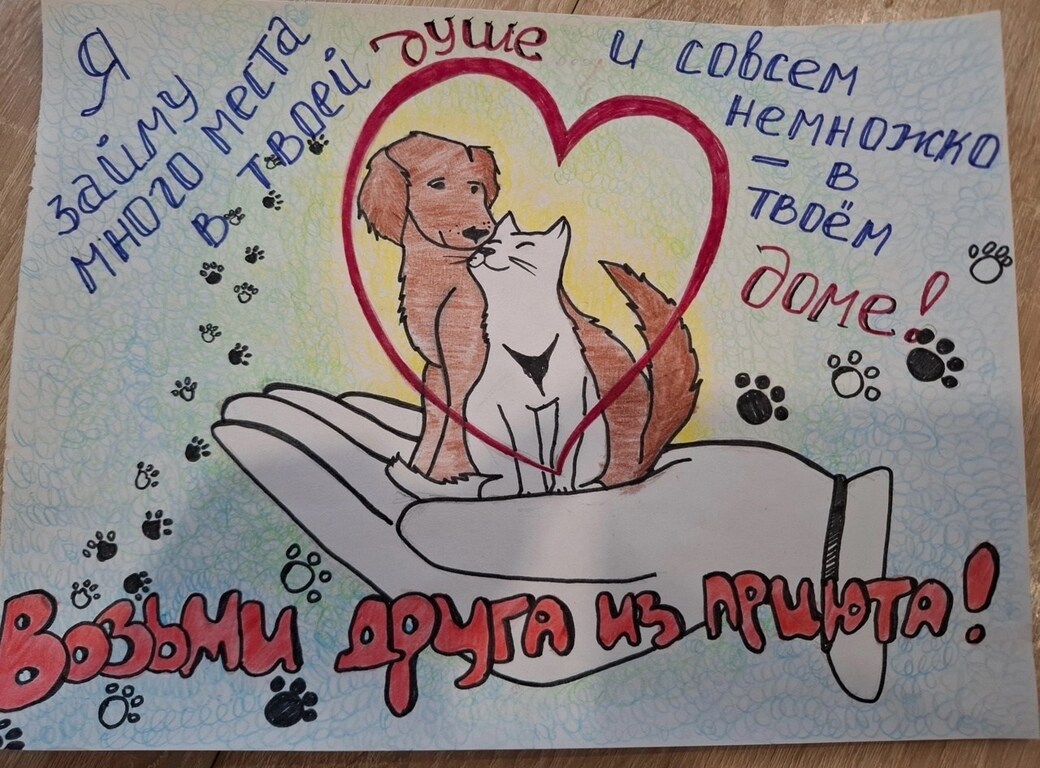 Я
займу
много места
в твоей
душе
и совсем
немножко
- в
твоём
доме!
Возьми друга из приюта!